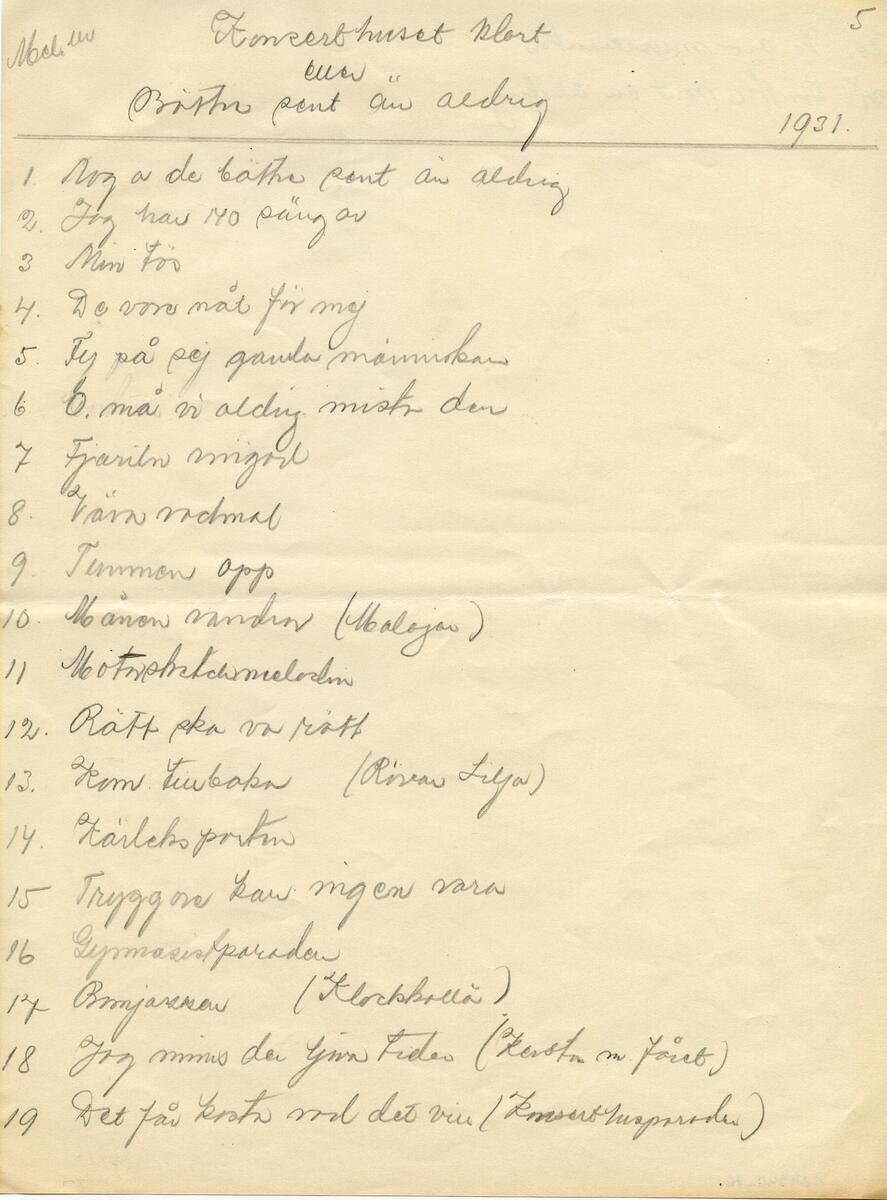 5
Konserthuset klart
eller
Bättre sent än aldrig
1931.
1. Nog a de bättre sent än aldrig
2. Jag har 140 sängar
3 Min tös
4. De vore nåt för mej
5. Fy på sej gamla människan
6 O, må vi aldrig mista den
7 Fjäriln vingad
8. Väva vadmal
9. Tummen opp
10. Månen vandrar (Malajen)
11 Motorsketchmelodin
12. Rätt ska va rätt
13. Kom tillbaka (Rövar Lilja)
14. Kärleksporten
15 Tryggare kan ingen vara
16 Gymnasistparaden
17 (Klockkallä)
18 Jag minns den ljuva tiden (Kersta m. Fåret)
19 Det får kosta vad det vill (Konserthusparaden)